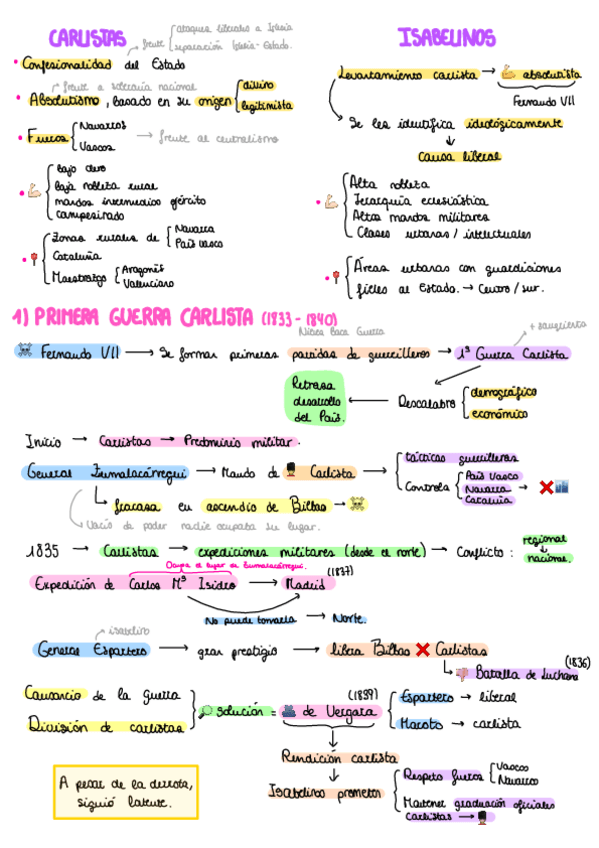 CARLISTAS
ISABELINOS
frente
ataques liberales a Iglesia
separación Iglesia-Estado.
• Confesionalidad del Estado
frente a soberanía nacional
• Absolutismo, basado en su origen
divino
legitimista
• Fueros
Navarros
Vascos
frente al centralismo
•
bajo clero
baja nobleza rural
mandos intermedios ejército
campesinado
•
Zonas rurales de
Navarra
País vasco
Cataluña
Maestrazgo
Aragonés
Valenciano
Levantamiento carlista → absolutista
Fernando VII
Se les identifica ideológicamente
Causa liberal
•
Alta nobleza
Jerarquía eclesiástica
Altos mandos militares
Clases urbanas / intelectuales
•
Áreas urbanas con guardiciones
fieles al Estado. → Centro / sur.
1) PRIMERA GUERRA CARLISTA (1833 - 1840)
+ sangrienta
Fernando VII → Se forman primeras partidas de guerrilleros → 1ª Guerra Carlista
Retrasa
desarrollo
del País.
Descalabro
demográfico
económico
Inicio → Carlistas → Predominio militar.
General Zumalacárregui → Mando de Carlista →
tácticas guerrilleras
Controla
País Vasco
Navarra
Cataluña
→
fracasa en ascendio de Bilbao →
Vacío de poder nadie ocupaba su lugar.
1835 → Carlistas → expediciones militares (desde el norte) → Conflicto:
regional
nacional.
Ocupa el lugar de Zumalacárregui.
Expedición de Carlos Mª Isidro → Madrid (1837)
No puede tomarla → Norte.
isabelino
General Espartero → gran prestigio → libera Bilbao Carlistas
Batalla de Luchana (1836)
Causancio de la guerra
División de carlistas
solución = de Vergara (1839)
Espartero → liberal
Maroto → carlista
Rendición carlista
Isabelinos prometen
Respeto fueros
Vascos
Navarros
Mantener graduación oficiales
Carlistas →
A pesar de la derrota,
siguió latente.